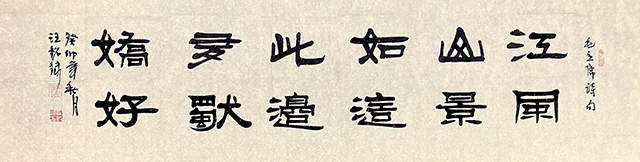 毛主席詩句
江山如此多嬌
風景這邊獨好
癸卯年秋月
汪